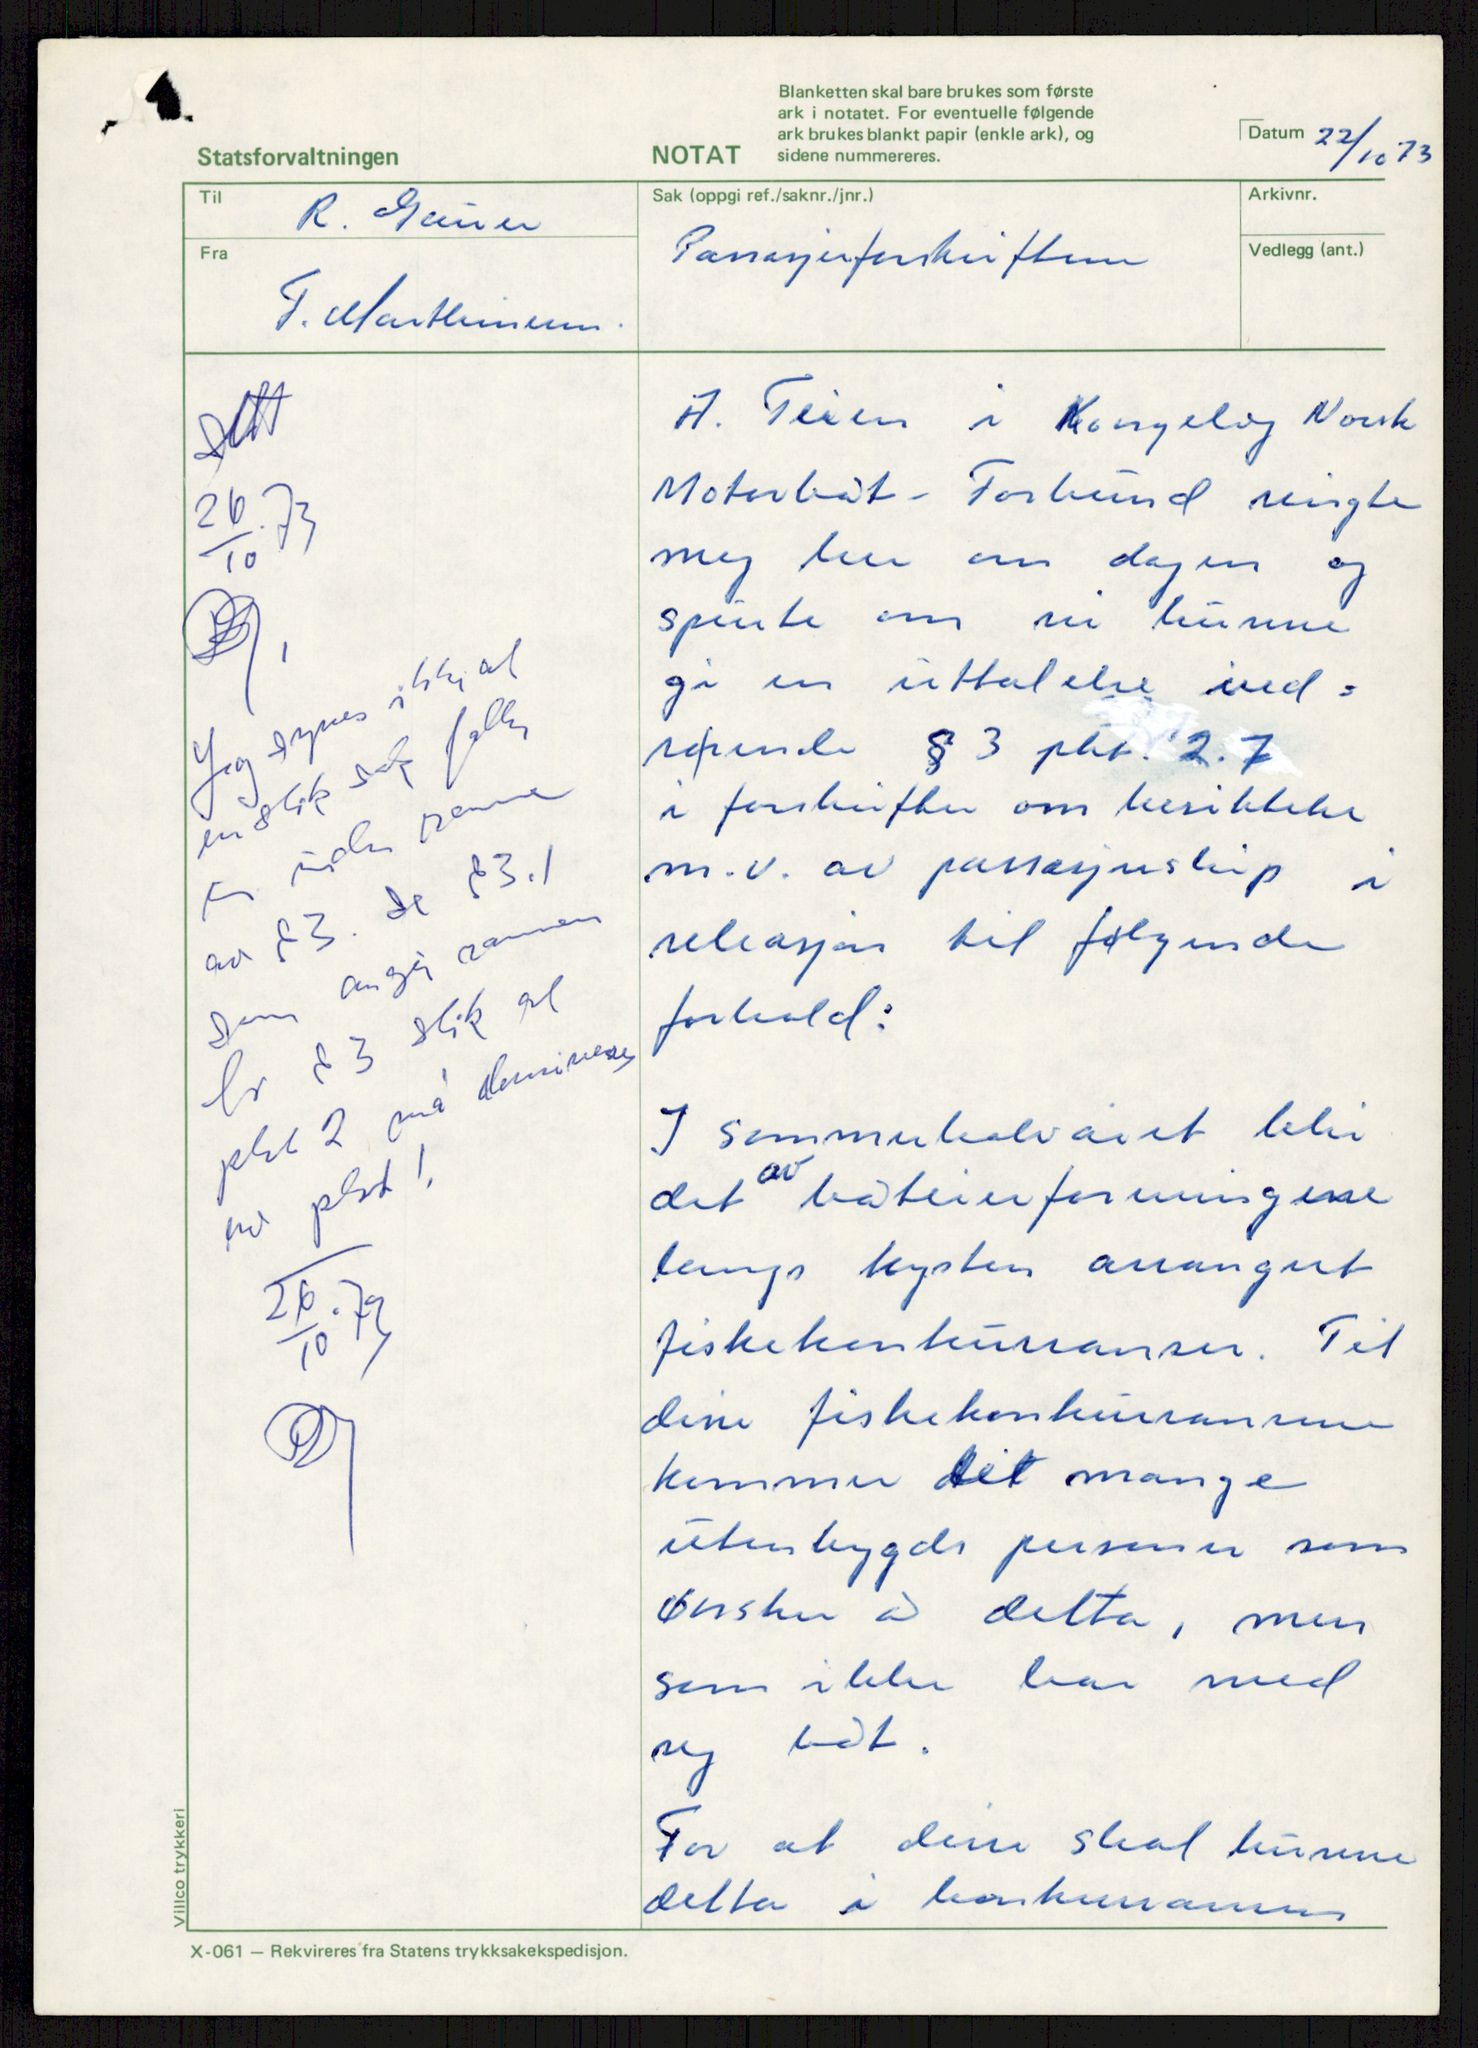 Blanketten skal bare brukes som første
ark i notatet. For eventuelle følgende
ark brukes blankt papir (enkle ark), og
sidene nummereres.
Statsforvaltningen
NOTAT
Datum 22/10 73
Til
R.
Sak (oppgi ref./saknr./jnr.)
Arkivnr.
Passasjerforskriftene
Fra
Vedlegg (ant.)
F. Marthinsen.
A. Teien i Kongelig Norsk
Motorbåt-Forbund ringte
meg her om dagen og
spurte om vi kunne
gi en uttalelse ved-
rørende § 3 pkt. 2.7
i forskrifter om besiktelse
m.v. av passasjerskip i
relasjon til følgende
forhold:
I sommerhalvåret blir
det av båteierforeningene
langs kysten arrangert
fiskekonkurranser. Til
disse fiskekonkurransene
kommer det mange
utenbygds personer som
ønsker å delta, men
som ikke har med
seg båt.
For at disse skal kunne
delta i konkurransen
26/10.73
Jeg synes ikke at
en slik sak faller
inn under ramme
av § 3. Se § 3.1
som angir rammen
for § 3 slik at
pkt 2 må
26/10.73
Villco trykkeri
X-061 — Rekvireres fra Statens trykksakekspedisjon.